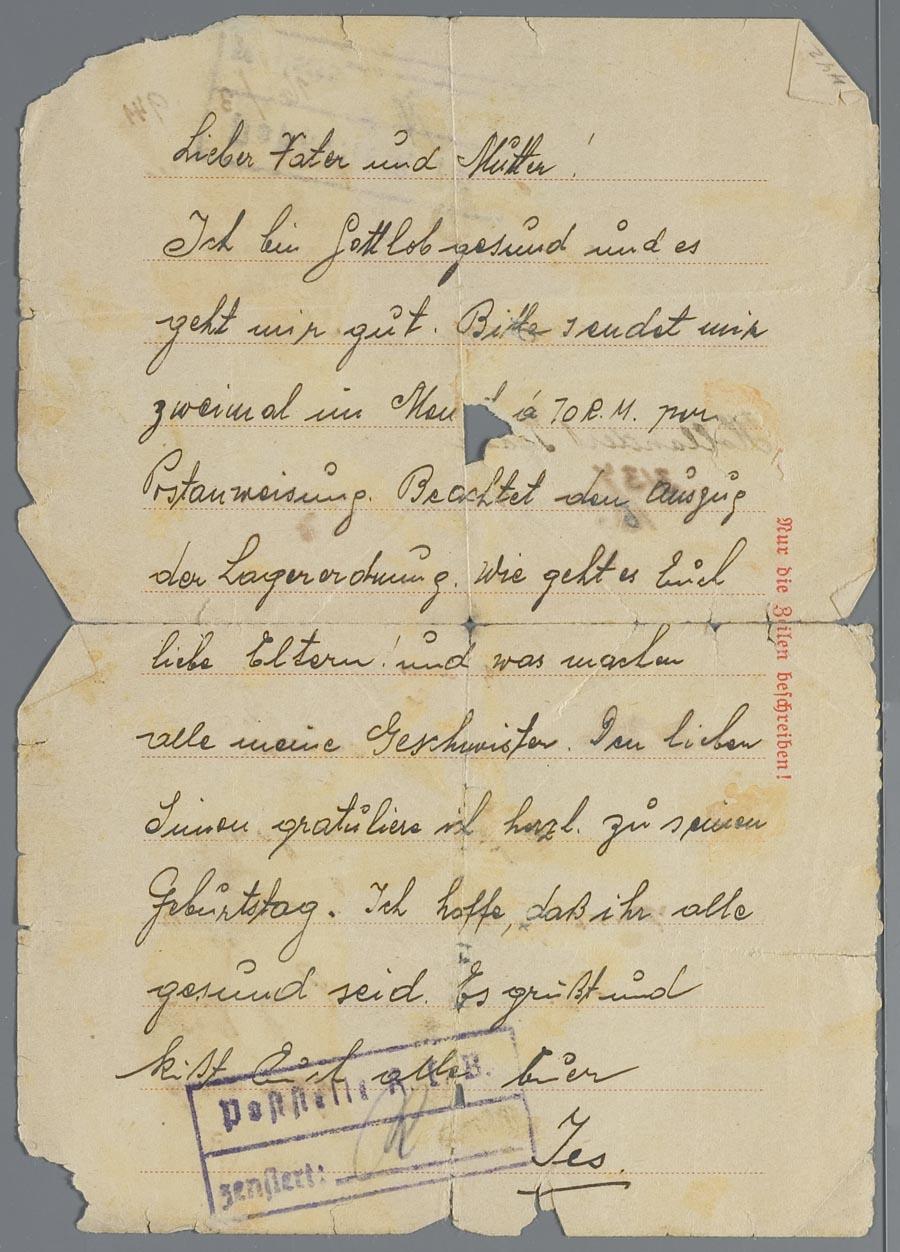 Lieber Vater und Mutter!
Ich bin Gottlob gesund und es
geht mir gut. Bitte sendet mir
zweimal im Mon á 10 R.M. per
Postanweisung. Beachtet den Auszug
der Lagerordnung. Wie geht es Euch
liebe Eltern! und was machen
alle meine Geschwister. Den lieben
Simon gratuliere ich herzl. zu seinen
Geburtstag. Ich hoffe, daß ihr alle
gesund seid. Es grüßt und
kißt Euch alle
Poststelle
zensiert:
Nur die Zeilen beschreiben!